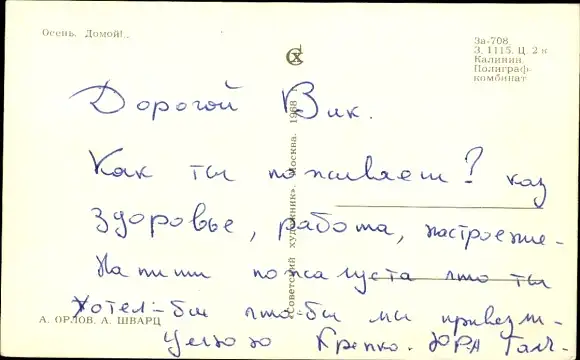 Осень. Домой!..
За-708
З. 1115. Ц. 2 к
Калинин.
Полиграф-
комбинат
«Советский художник». Москва. 1968 г.
Дорогой Вик.
Как ты поживаеш? каз
здоровье, работа, настроение-
Напиши пожалуста что ты
Хотел-бы что-бы мы привезли-
Целою Крепко. ЮРА Гал-
А. ОРЛОВ. А. ШВАРЦ